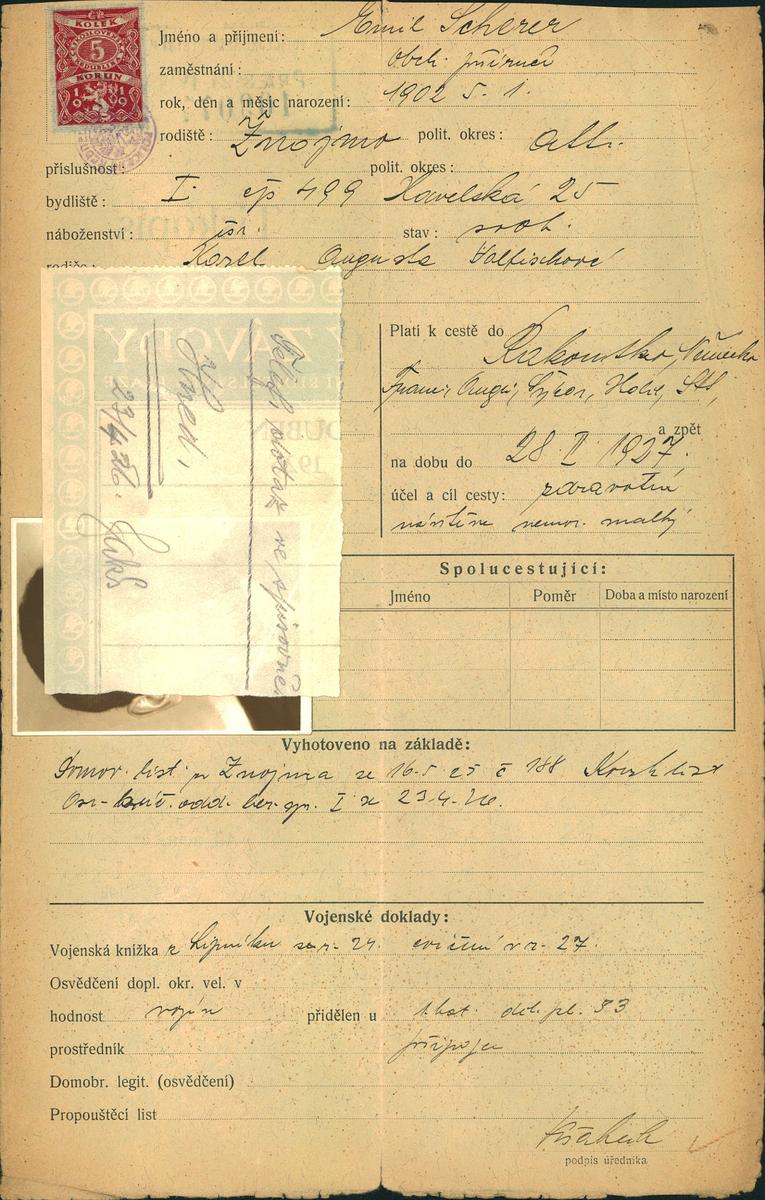 KOLEK
5
KORUN
Jméno a příjmení: Emil Scherer
zaměstnání: obch. příručí
rok, den a měsíc narození: 1902 5. 1.
rodiště: Znojmo polit. okres: dtto.
příslušnost: polit. okres:
bydliště: I. čp 499 Havelská 25
náboženství: isr. stav: svob.
rodiče: Karel Augusta
Platí k cestě do Rakouska, Německa
Franc, Angl, Švýcar, Hol,
a zpět
na dobu do 28. II. 1927.
účel a cíl cesty: zdravotní
návštěva nemoc. matky
Telef. dotaz ve spisovně
ihned.
23/4 26.
Spolucestující:
Jméno Poměr Doba a místo narození
Vyhotoveno na základě:
Domov. list z Znojma ze 16.5.25 č 188
I z 23.4.26.
Vojenské doklady:
Vojenská knížka z Lipníku r. 24. cvičení v r. 27.
Osvědčení dopl. okr. vel. v
hodnost vojín přidělen u pl. 33
prostředník
Domobr. legit. (osvědčení)
Propouštěcí list
podpis úředníka